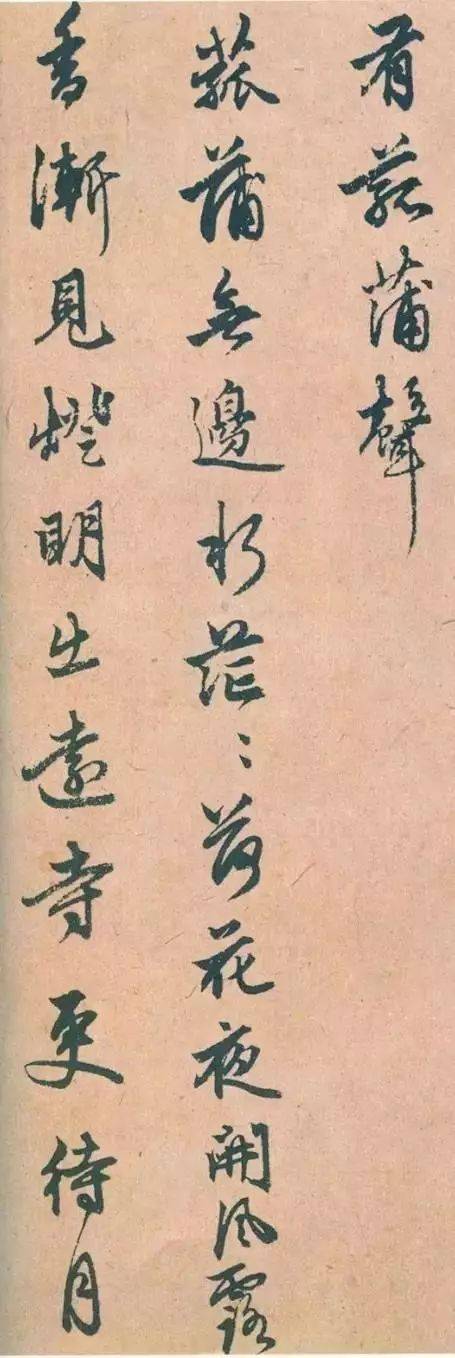 有菰蒲聲
菰蒲無邊水茫〻荷花夜開風露
香漸見燈明出遠寺更待月